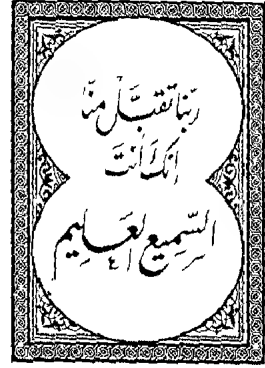 ربنا تقبّل منّا
إنك أنتَ
السّميع العليم